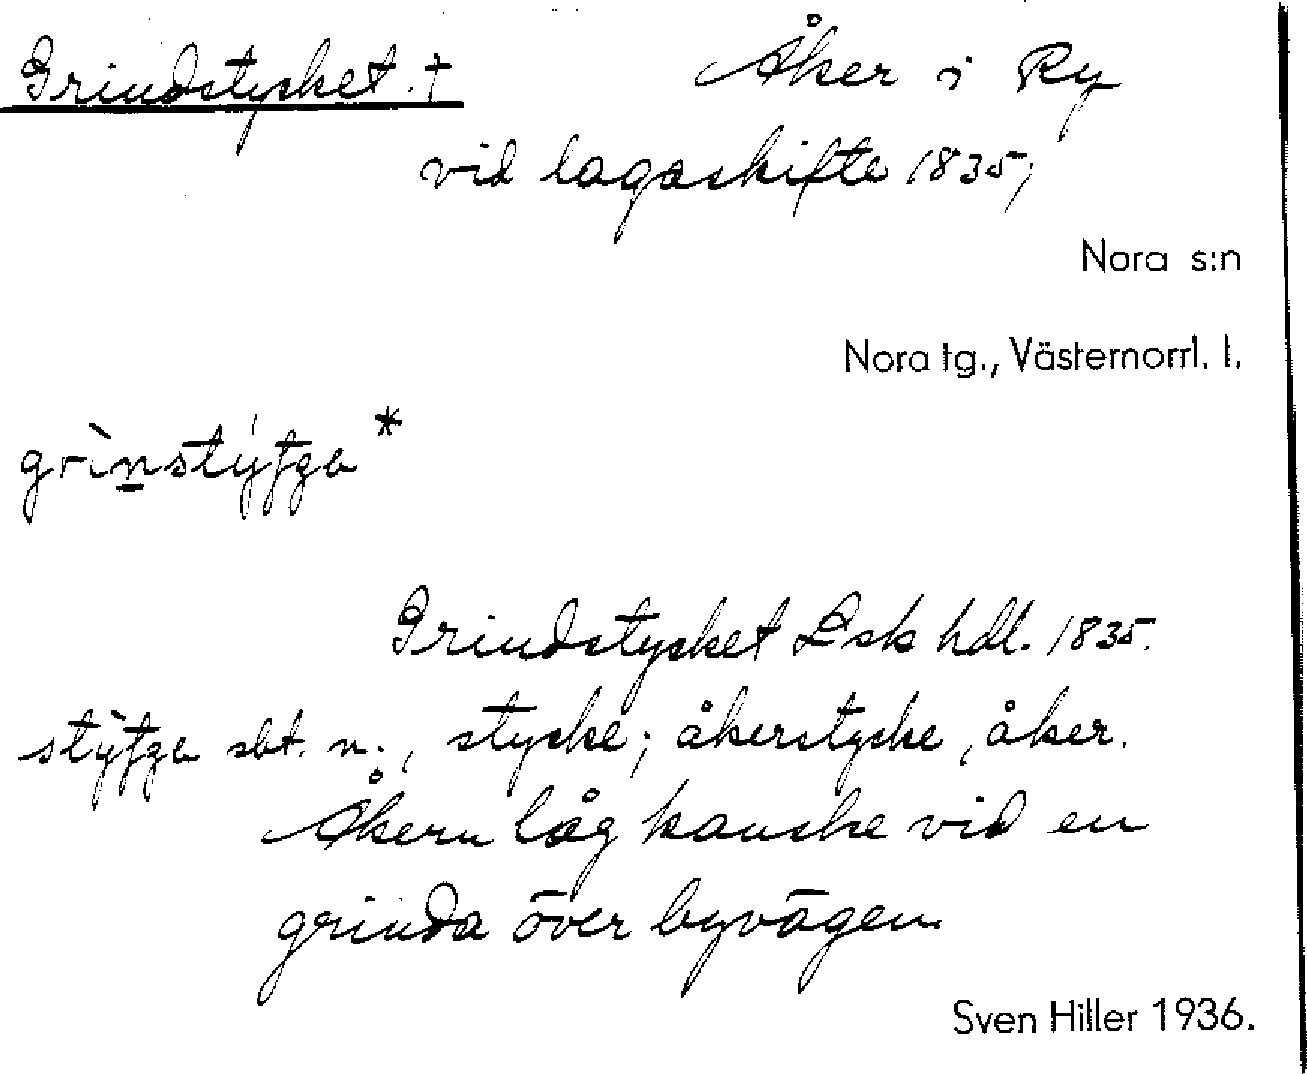 Grindstycket. † Åker i Ry
vid lagaskifte 1835;
Nora s:n
Nora tg., Västernorrl. l.
grìnstýtga *
Grindstycket Lsk hdl. 1835.
stỳtga sbt. n., stycke; åkerstycke, åker.
Åkern låg kanske vid en
grinda över byvägen.
Sven Hiller 1936.